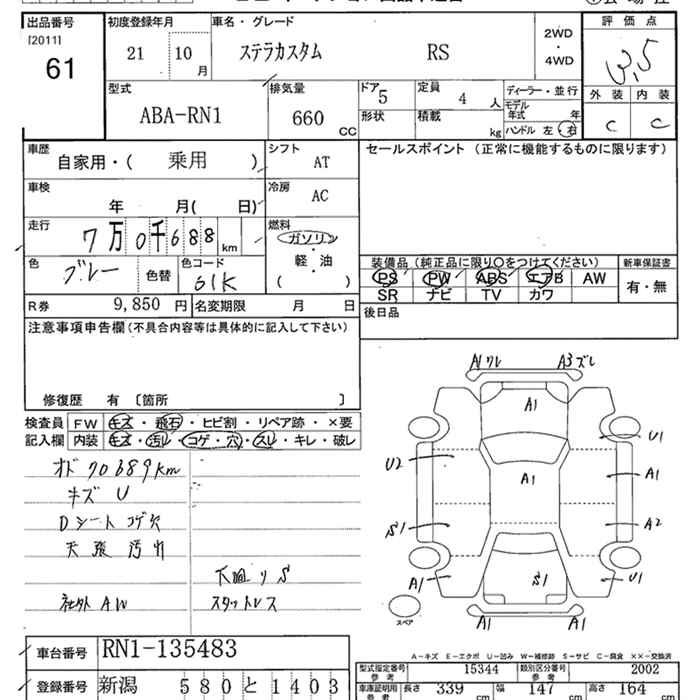 出品番号 初度登録年月 車名・グレード 2WD・4WD 評価点
[2011] 61
21 10月 ステラカスタム RS 3.5
型式 排気量 ドア 5 定員 4人 ディーラー・並行 外装 内装
ABA-RN1 660CC 形状 積載 kg モデル年式 年 C C
ハンドル 左・右
車歴 シフト セールスポイント (正常に機能するものに限ります)
自家用・( 乗用 ) AT
車検 冷房
年 月( 日) AC
走行 燃料
7万0千688km ガソリン・軽・油・( )
色 色コード 装備品 (純正品に限り○をつけてください) 新車保証書
グレー 色替 61K PS PW ABS エアB AW 有・無
SR ナビ TV カワ
R券 9,850円 名変期限 月 日 後日品
注意事項申告欄 (不具合内容等は具体的に記入して下さい)
修復歴 有 〔箇所 〕
検査員 FW キズ・飛石・ヒビ割・リペア跡・×要
記入欄 内装 キズ・汚れ・コゲ・穴・スレ・キレ・破レ
オドロ689km
キズ U
Dシート コゲ穴
天張汚れ
下廻りS
社外AW スタットレス
A1ワレ A3ズレ
A1
U1
U2 A1 A1
S1 A2
A1 S1 U1
スペア A1 A1
A-キズ E-エクボ U-凹み W-補修跡 S-サビ C-腐食 ××-交換済
車台番号 RN1-135483
型式指定番号 参考 15344 類別区分番号 参考 2002
登録番号 新潟 580 と 1403
車庫証明用 参考 長さ 339cm 幅 147cm 高さ 164cm